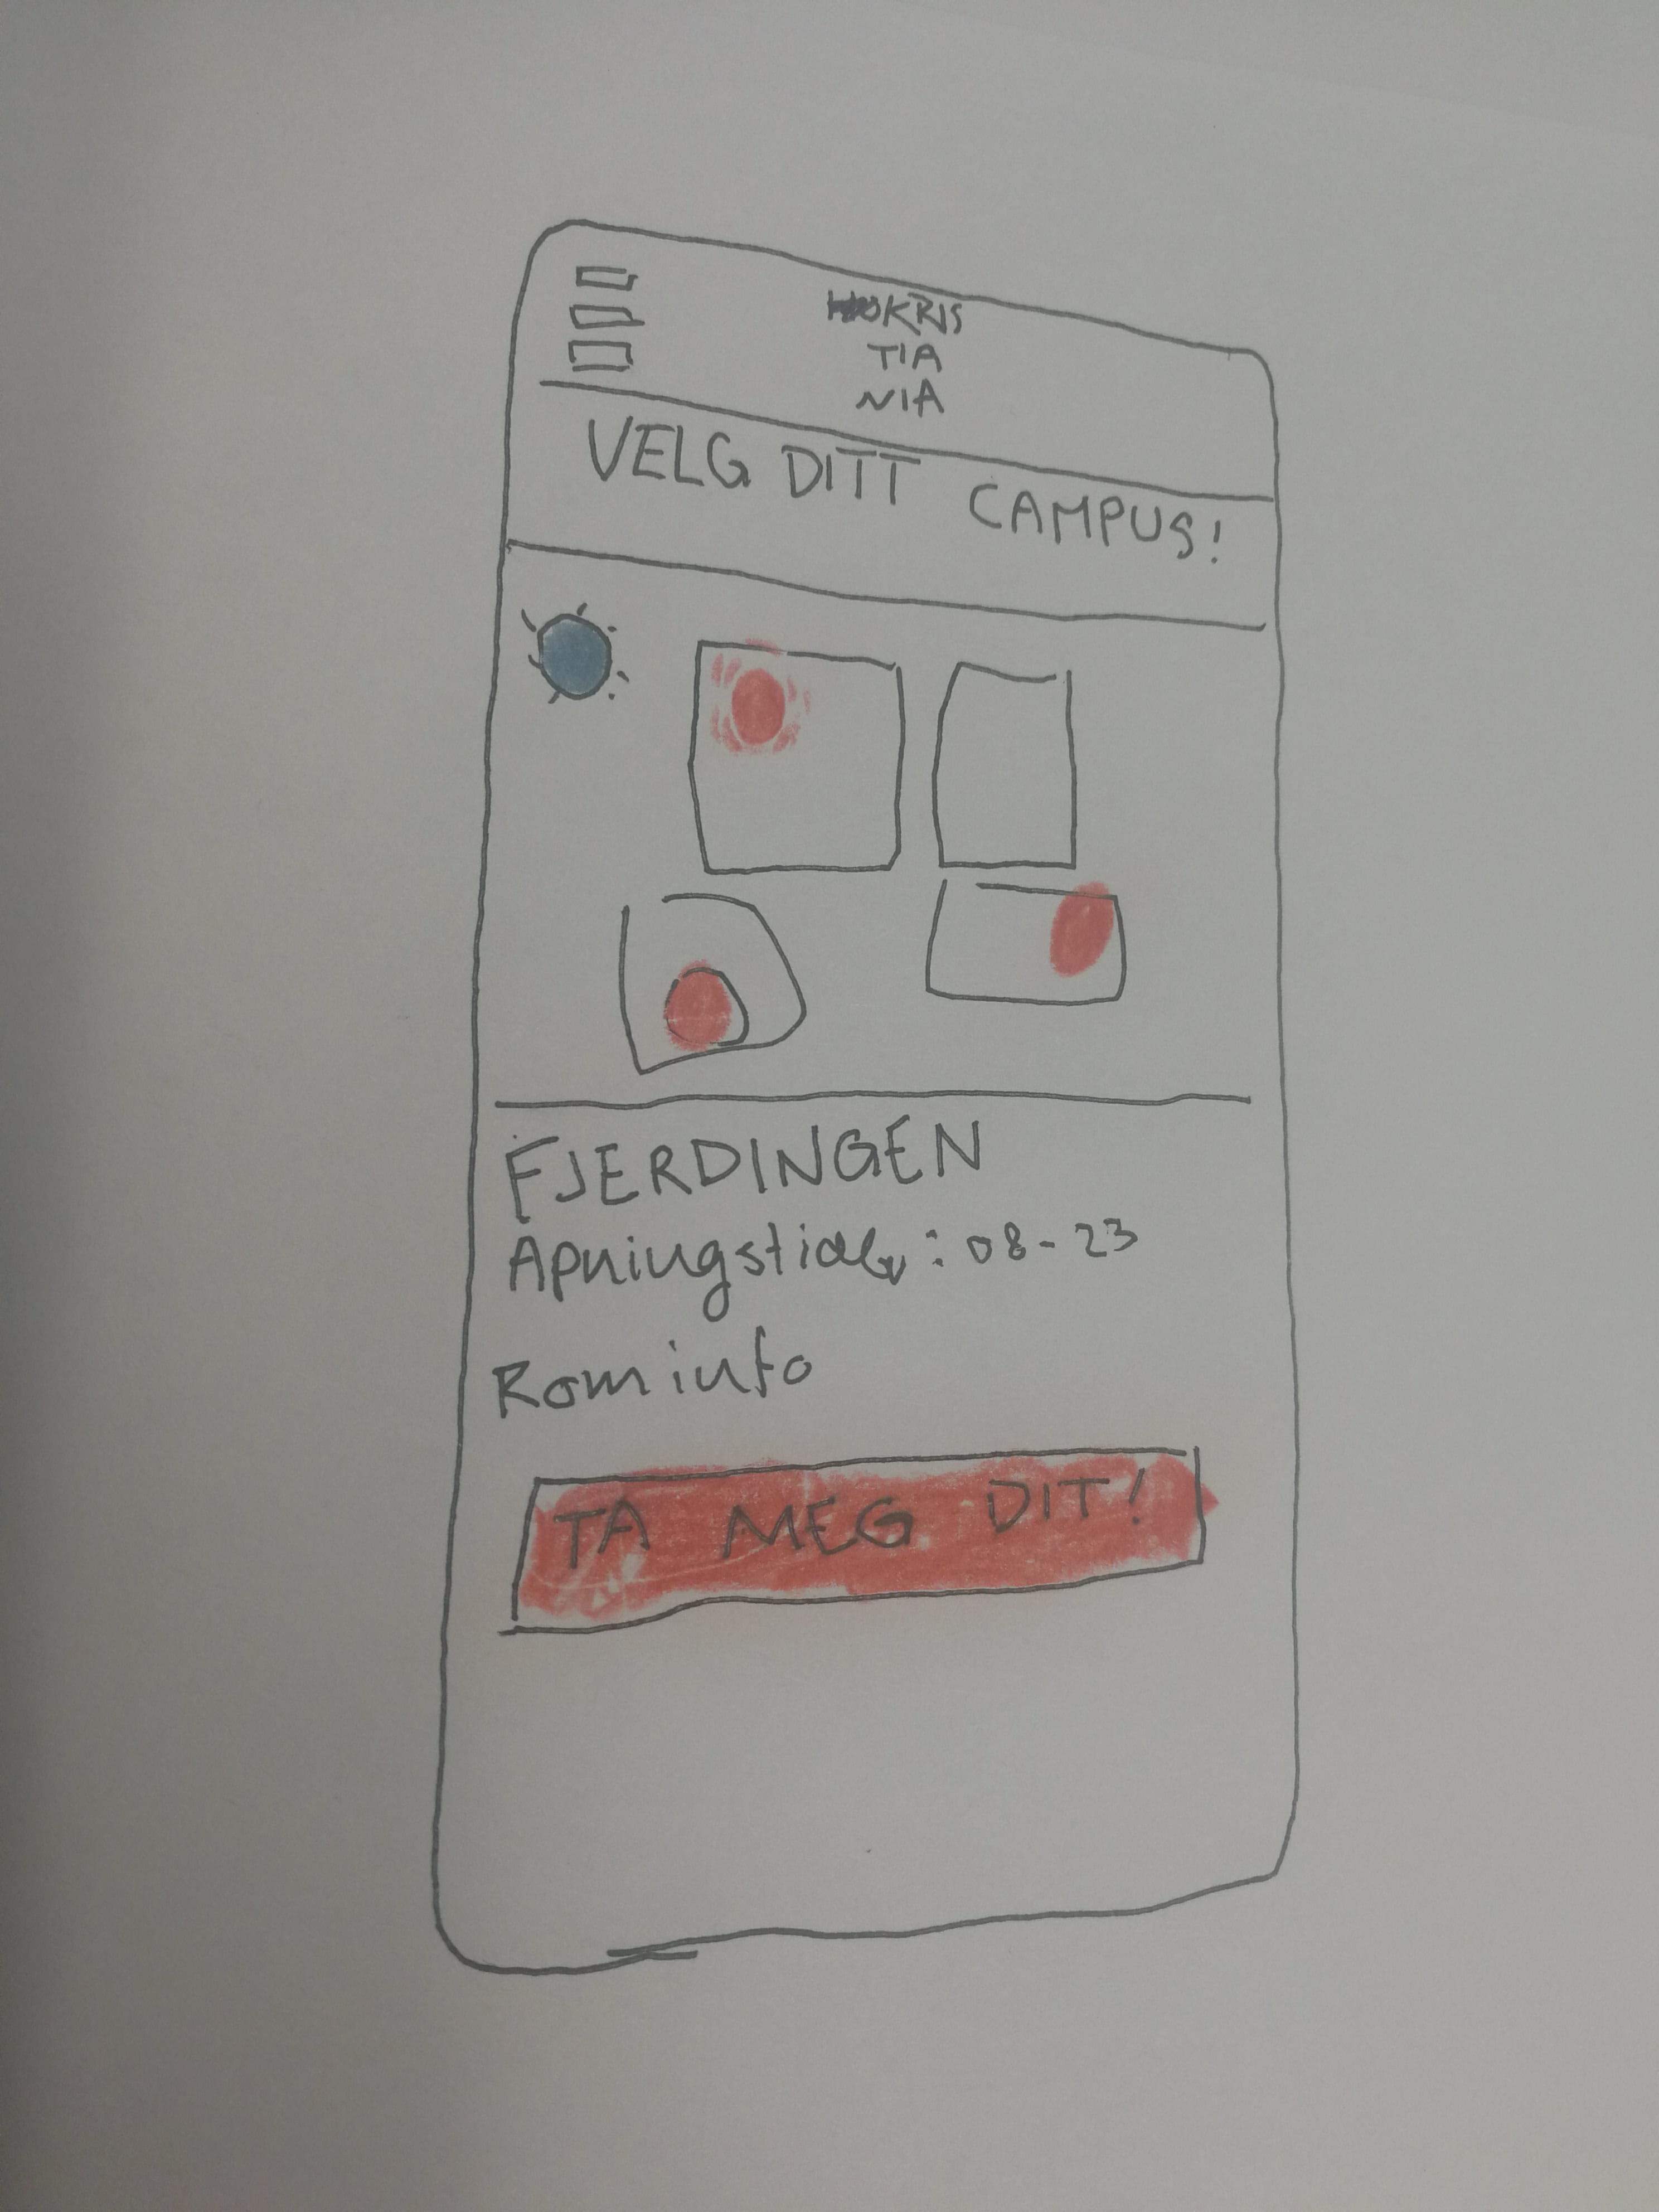 KRIS
TIA
NIA
VELG DITT CAMPUS!
FJERDINGEN
Apningstider: 08-23
Rom info
TA MEG DIT!